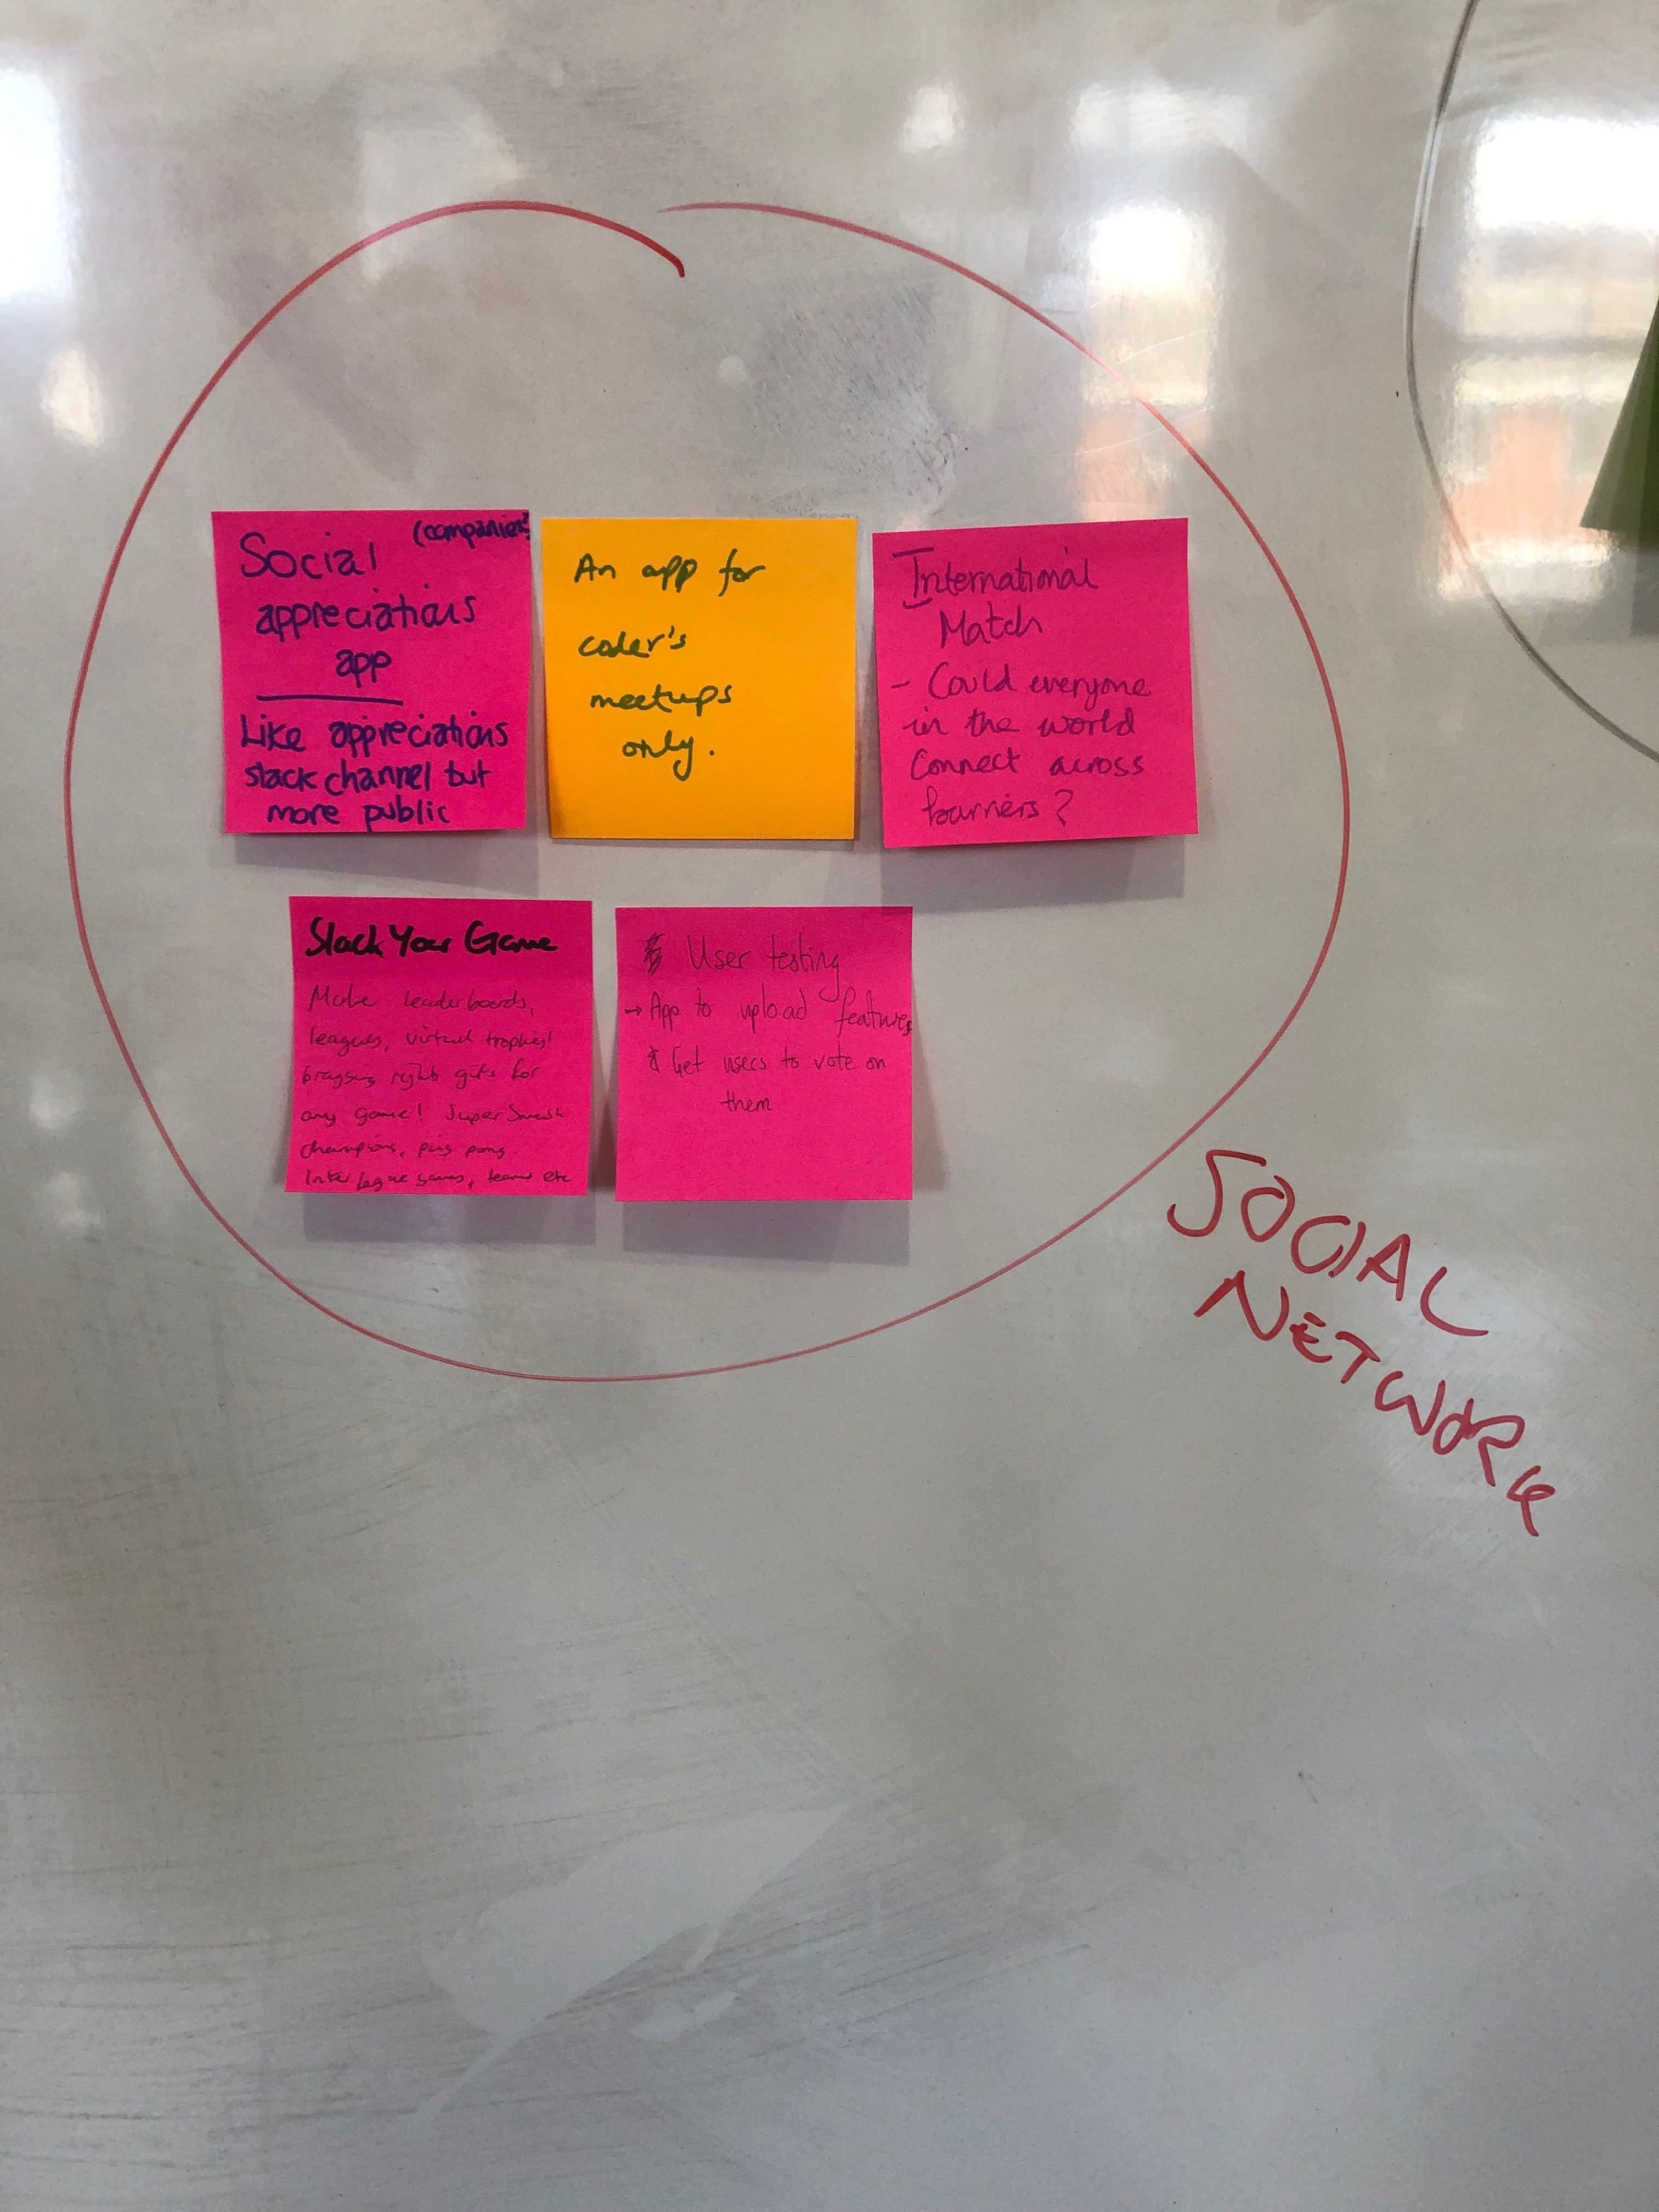 Social (companies)
appreciations
app
Like appreciations
slack channel but
more public
An app for
coder's
meetups
only.
International
Match
- Could everyone
in the world
connect across
barriers?
Slack Your Game
Make leaderboards,
leagues, virtual trophies!
bragging rights gifs for
any game! Super Smash
champions, ping pong.
Inter league games, teams etc
User testing
→ App to upload features
& Get users to vote on
them
SOCIAL
NETWORK